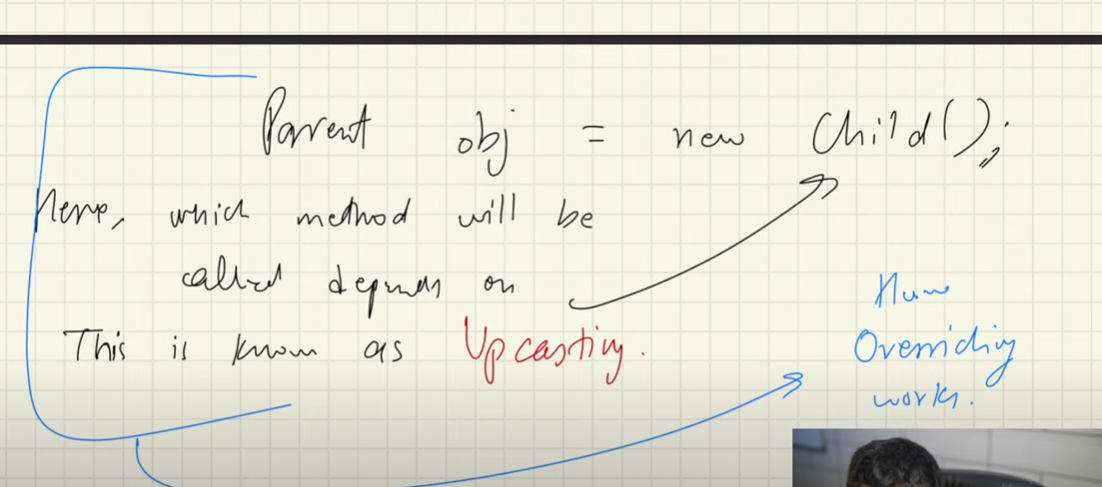 Parent obj = new Child();
Here, which method will be
called depends on
This is known as Upcasting.
How
Overriding
works.